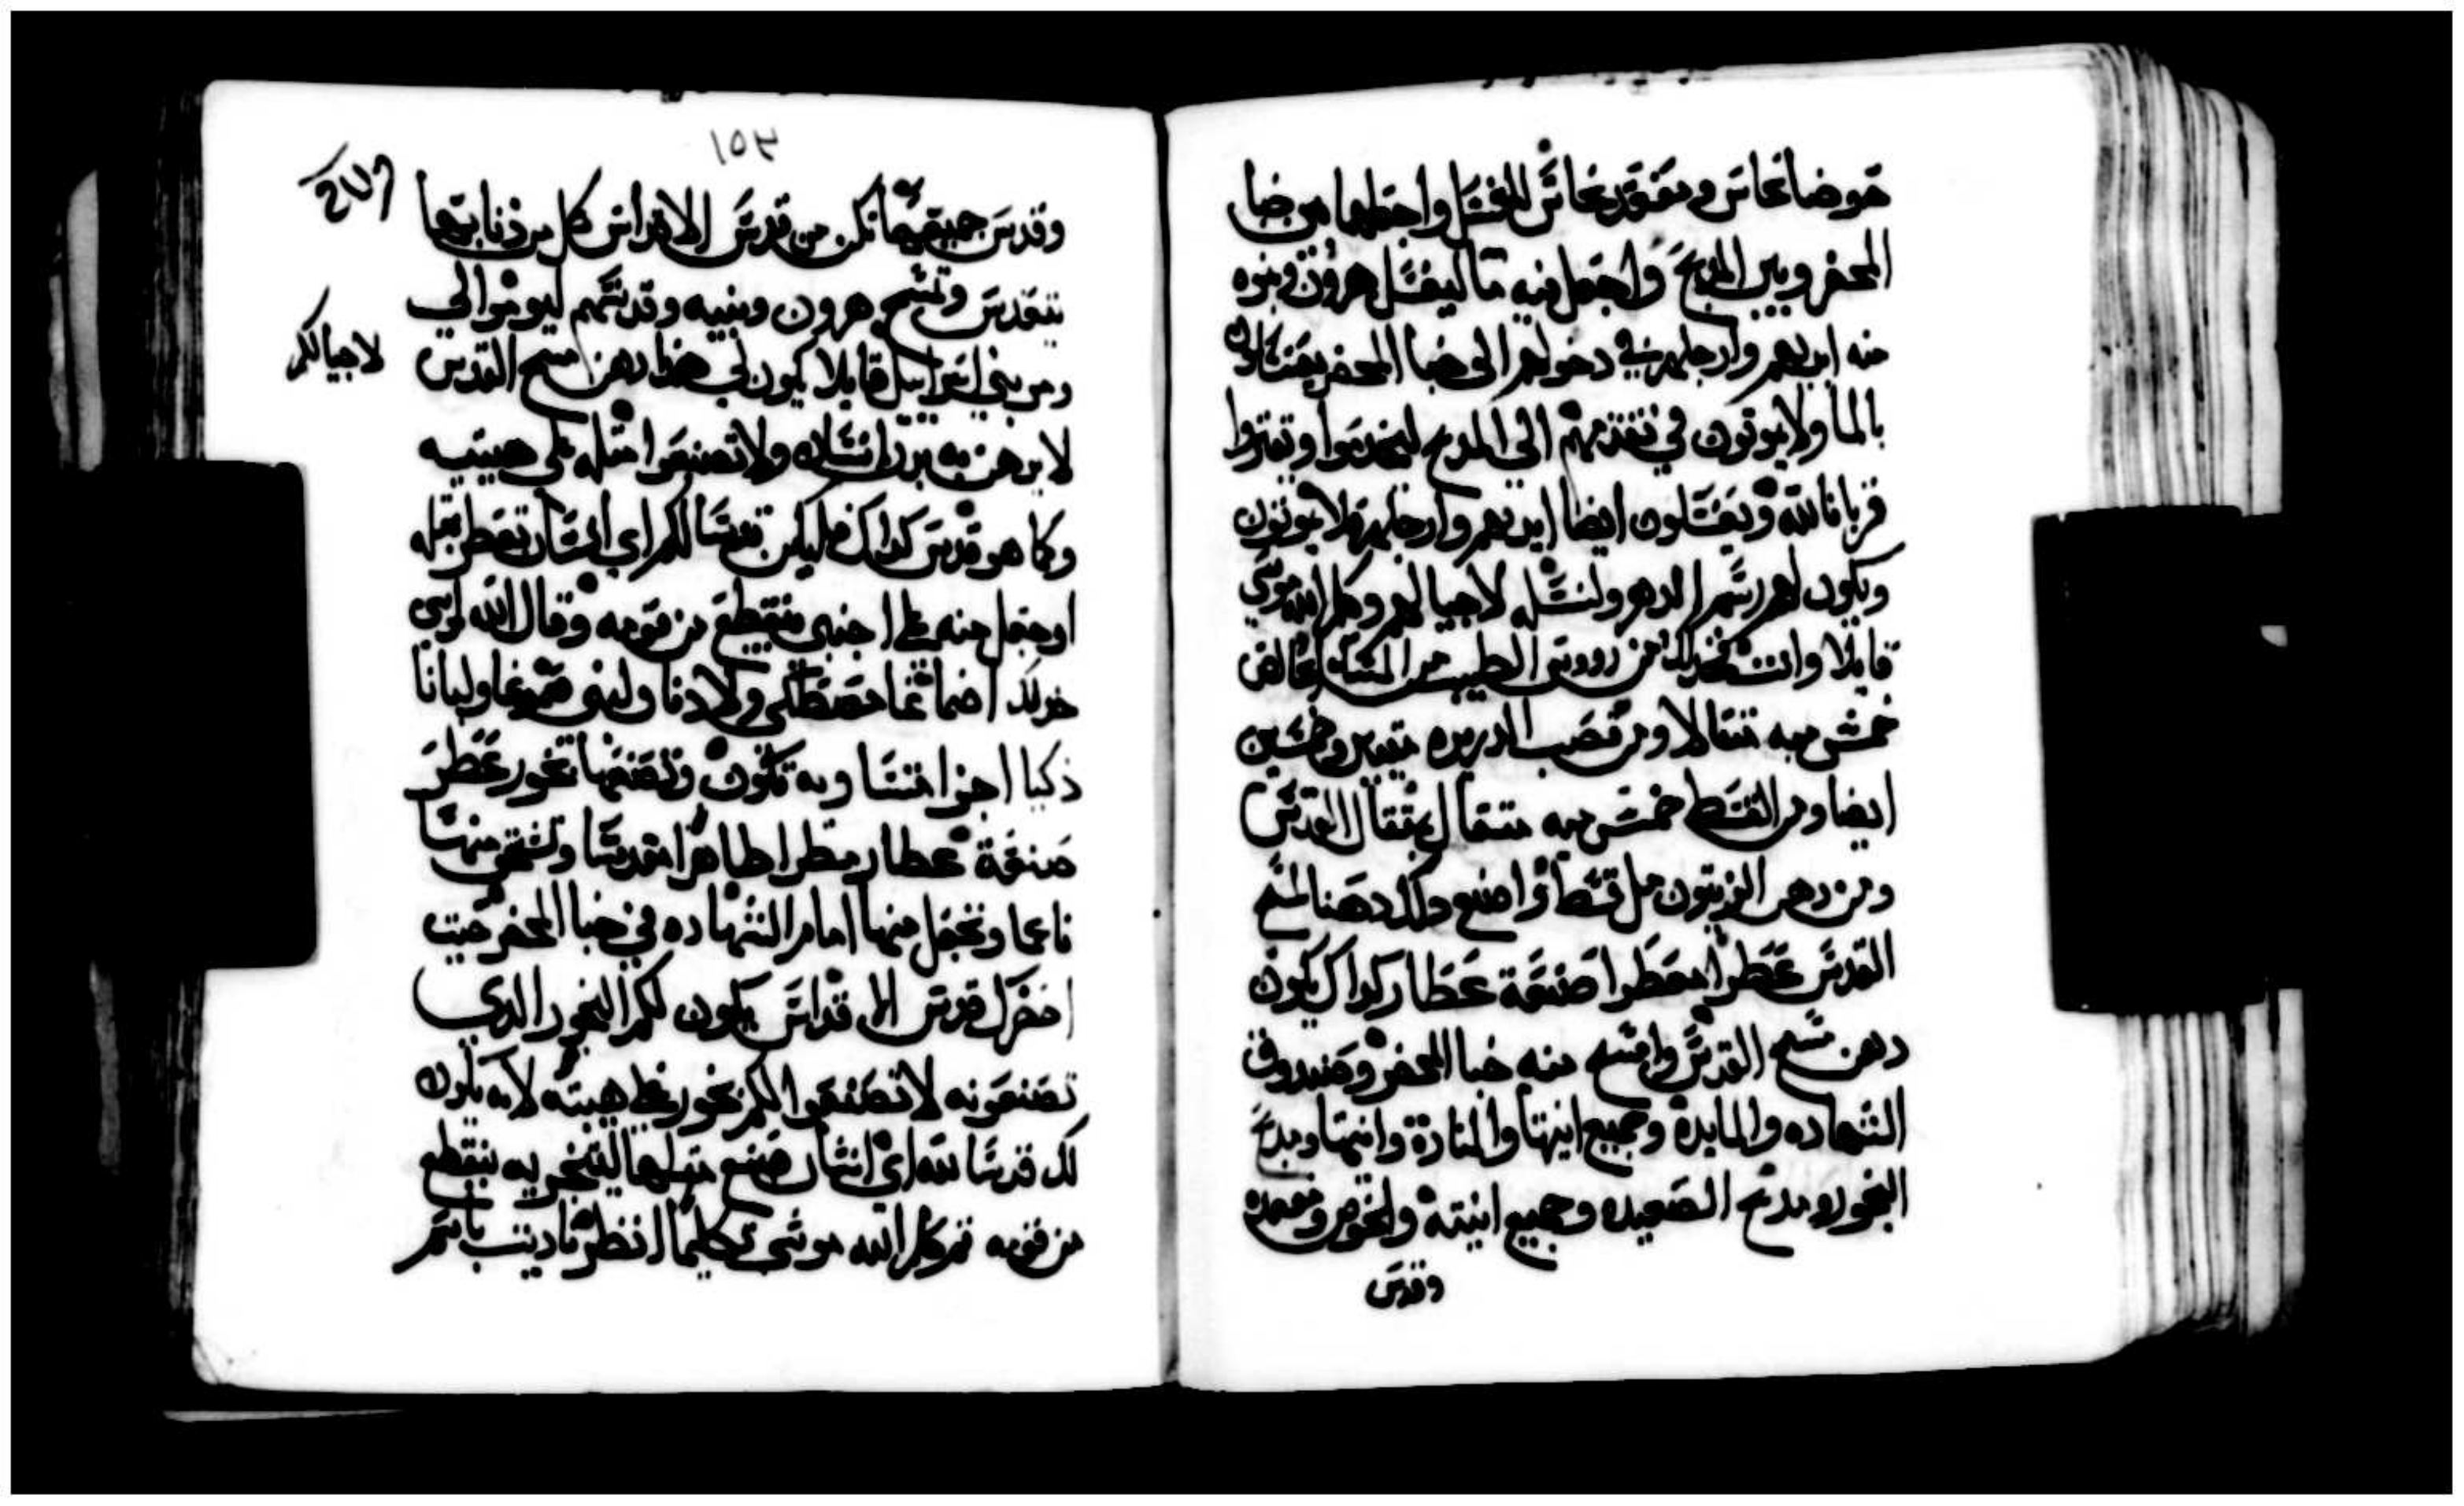 حوضا نحاس ومقعده نحاس للغسل واجعلها بين خبا
المحضر وبين المدبح واجعل فيه ما ليغسل هرون وبنوه
منه ايديهم وارجلهم في دخولهم الى خبا المحضر يغتسلون
بالما ولا يموتون في تقدمهم الي المدبح ليخدموا ويقتروا
قربانا لله ويغسلون ايضا ايديهم وارجلهم ولا يموتون
ويكون لهم رسم الدهر ولنسله لاجيالهم وكلم الله موسي
قايلا وانت فخد لك من رووس الطيب من المسك الخالص
خمس ميه مثقالا ومن قصب الدريره ميتين وخمسين
ايضا ومن القسط خمس ميه مثقال بمثقال القدس
ومن دهن الزيتون مل قسط واصنع داك دهنا لمسح
القدس عطرا معطرا صنعة عطار كداك يكون
دهن مسح القدس وامسح منه خبا المحضر وصندوق
الشهاده والمايدة وجميع انيتها والمنارة وانيتها ومدبح
البخور ومدبح الصعيده وجميع انيته والحوض ومقعده
وقدس
١٥٣
وقدس جميعهما تكن من قدس الاقداس كل من دنا بهما
يتقدس وتمسح هرون وبنيه وقدسهم ليومّوا لي
ومر بني اسراييل قايلا يكون لي هذا دهن مسح القدس
لاجيالكم
لا يدهن به بدن انسان ولا تصنعوا مثله على هييته
وكما هو قدس كداك فليكن قدسا لكم اي انسان تعطر بمثله
او جعل منه على اجنبي ينقطع من قومه وقال الله لموسي
خد لك اضماغا مصطكي ولادنا ولبني ميعه ولبانا
ذكيا اجزا متسا ويه تكون وتصنعها بخور عطر
صنعة عطار معطرا طاهرا مقدسا وتسحق منها
ناعما وتجعل منها امام الشهاده في خبا المحضر حيت
احضرك قدس الاقداس يكون لكم البخور الدي
تصنعونه لا تصنعوا لكم بخور على هييته لانه يكون
لك قدسا لله اي انسان صنع متلها ليتبخر به ينقطع
من قومه ثم كلم الله موسى تكليما انظر ناديت باسم